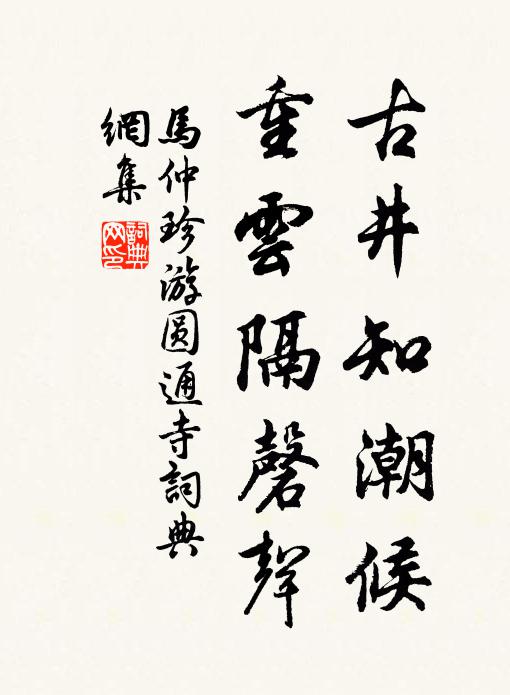 古井知潮候
重雲隔磬聲
馬仲珍游圆通寺詞典
網集
詞典網印